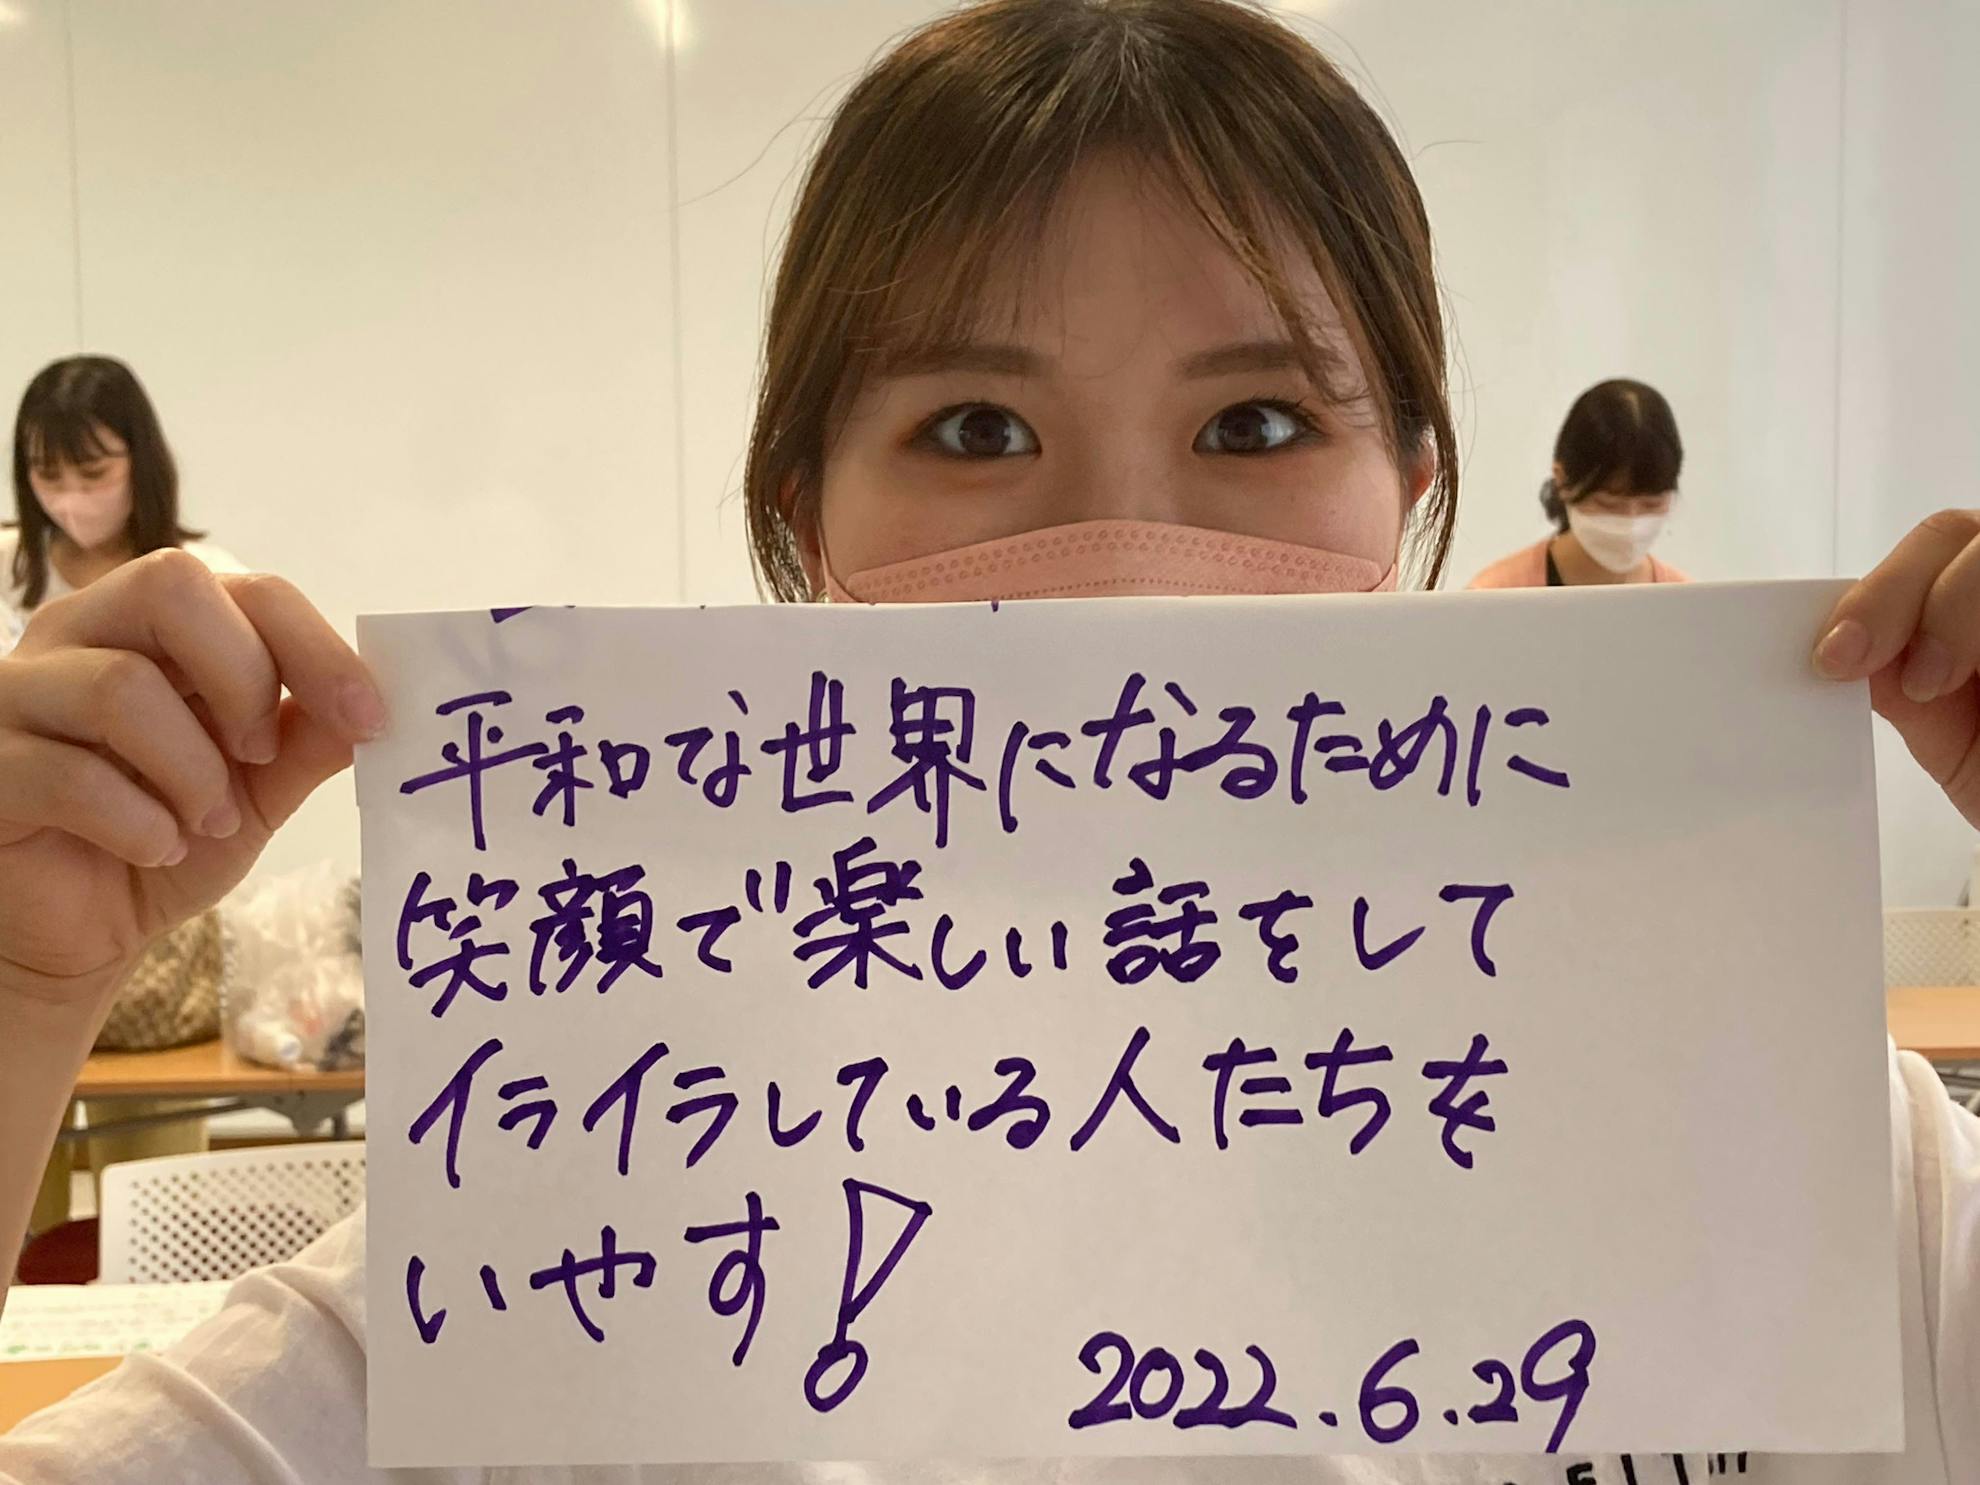 平和な世界になるために
笑顔で楽しい話をして
イライラしている人たちを
いやす!
2022.6.29